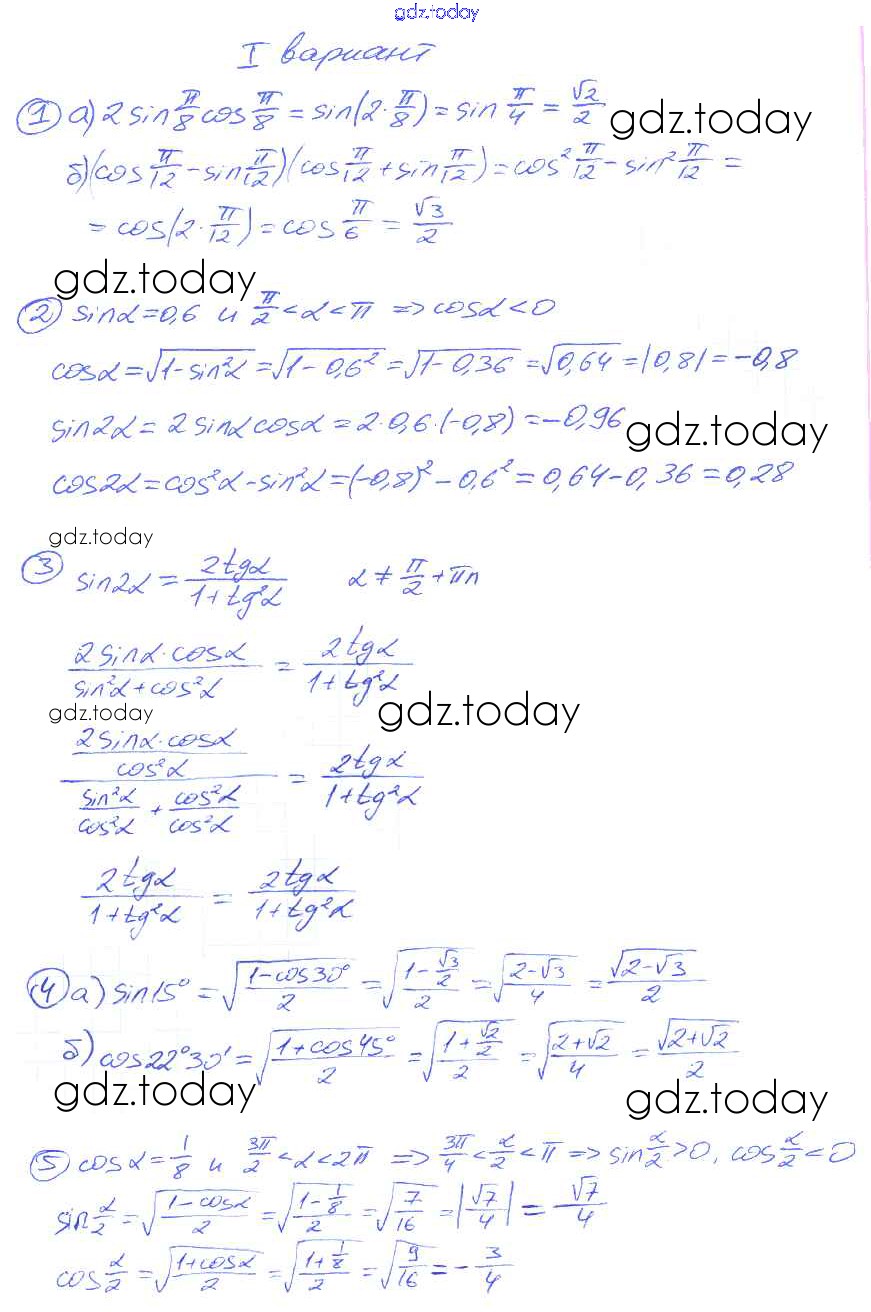 gdz.today
I вариант
① а) 2 sin π/8 cos π/8 = sin(2·π/8) = sin π/4 = √2/2
gdz.today
б) (cos π/12 − sin π/12)(cos π/12 + sin π/12) = cos² π/12 − sin² π/12 =
= cos(2·π/12) = cos π/6 = √3/2
gdz.today
② sinα = 0,6 и π/2 < α < π => cosα < 0
cosα = √(1−sin²α) = √(1−0,6²) = √(1−0,36) = √0,64 = |0,8| = −0,8
sin2α = 2 sinα cosα = 2·0,6·(−0,8) = −0,96
gdz.today
cos2α = cos²α − sin²α = (−0,8)² − 0,6² = 0,64 − 0,36 = 0,28
gdz.today
③ sin2α = 2tgα/(1+tg²α) α ≠ π/2 + πn
(2 sinα·cosα)/(sin²α + cos²α) = 2tgα/(1+tg²α)
gdz.today
gdz.today
((2 sinα·cosα)/cos²α)/(sin²α/cos²α + cos²α/cos²α) = 2tgα/(1+tg²α)
2tgα/(1+tg²α) = 2tgα/(1+tg²α)
④ а) sin15° = √((1−cos30°)/2) = √((1−√3/2)/2) = √((2−√3)/4) = √(2−√3)/2
б) cos22°30' = √((1+cos45°)/2) = √((1+√2/2)/2) = √((2+√2)/4) = √(2+√2)/2
gdz.today
gdz.today
⑤ cosα = 1/8 и 3π/2 < α < 2π => 3π/4 < α/2 < π => sin α/2 > 0, cos α/2 < 0
sin α/2 = √((1−cosα)/2) = √((1−1/8)/2) = √(7/16) = |√7/4| = √7/4
cos α/2 = √((1+cosα)/2) = √((1+1/8)/2) = √(9/16) = −3/4